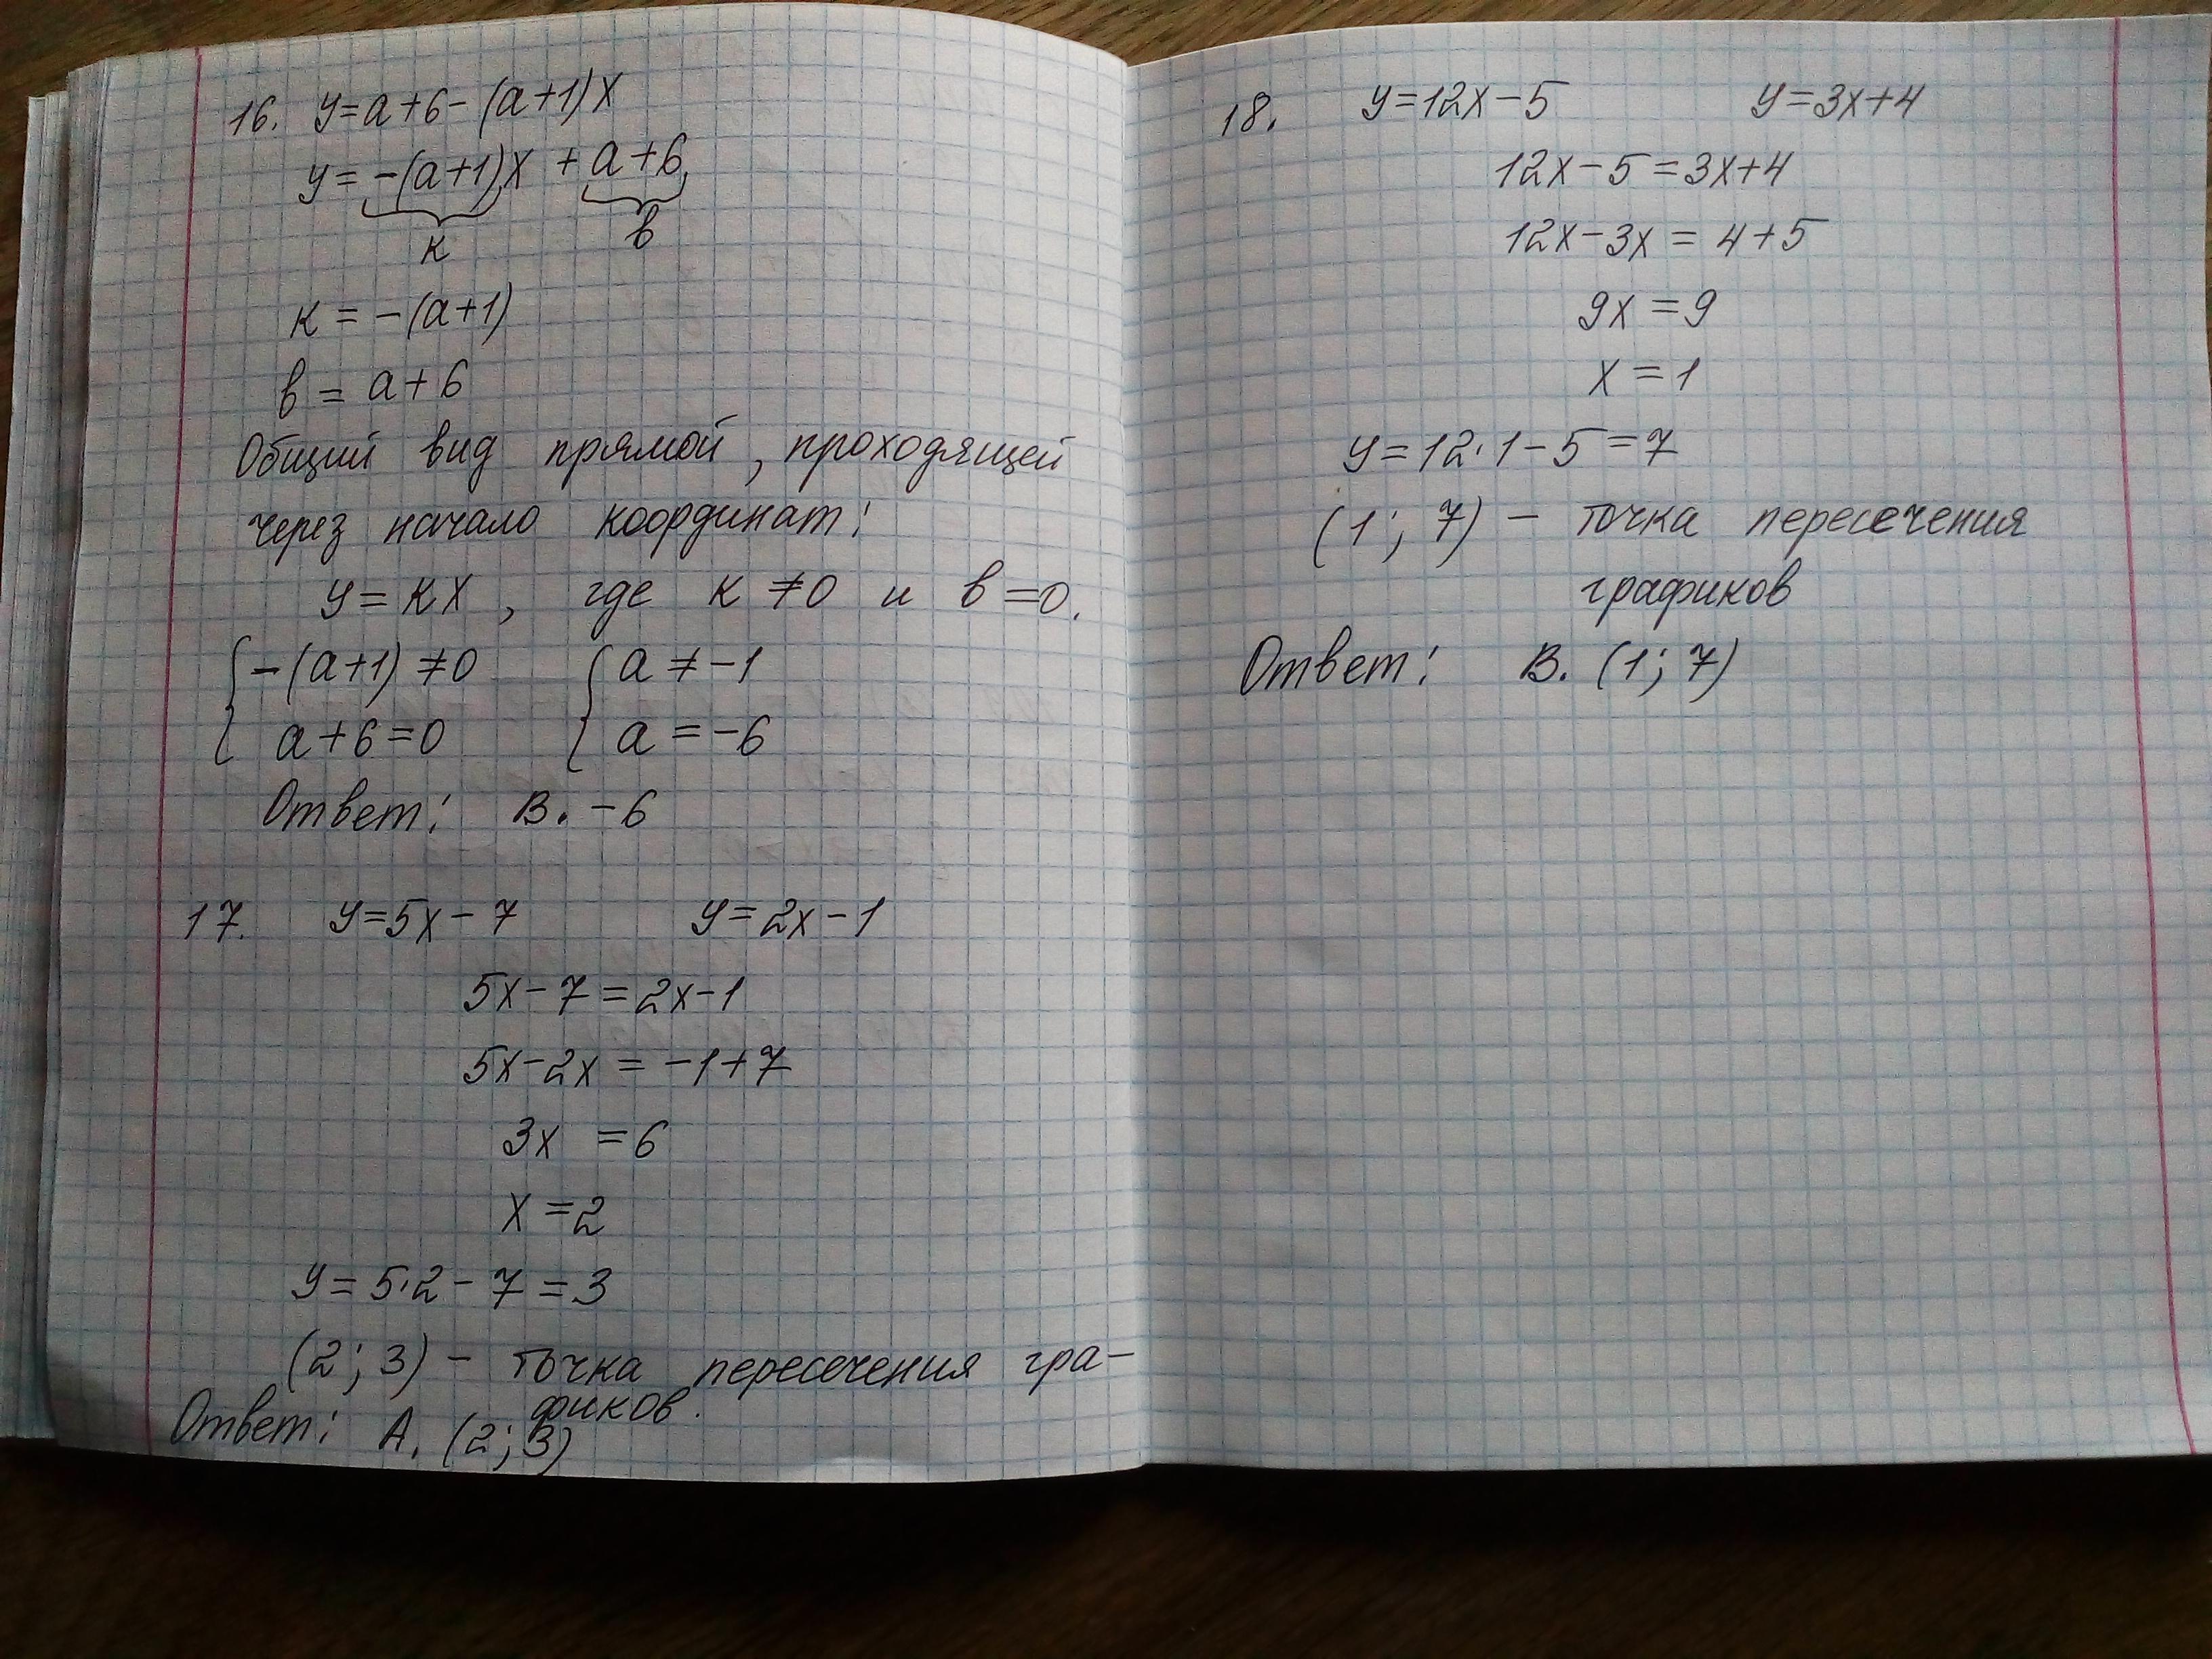 16. y=a+6-(a+1)x
y=-(a+1)x+a+6
к в
к=-(a+1)
в=a+6
Общий вид прямой, проходящей
через начало координат:
y=кx, где к≠0 и в=0.
-(a+1)≠0 a≠-1
a+6=0 a=-6
Ответ: В. -6
17. y=5x-7 y=2x-1
5x-7=2x-1
5x-2x=-1+7
3x=6
x=2
y=5·2-7=3
(2; 3) - точка пересечения гра-
фиков.
Ответ: А. (2; 3)
18. y=12x-5 y=3x+4
12x-5=3x+4
12x-3x=4+5
9x=9
x=1
y=12·1-5=7
(1; 7) - точка пересечения
графиков
Ответ: В. (1; 7)